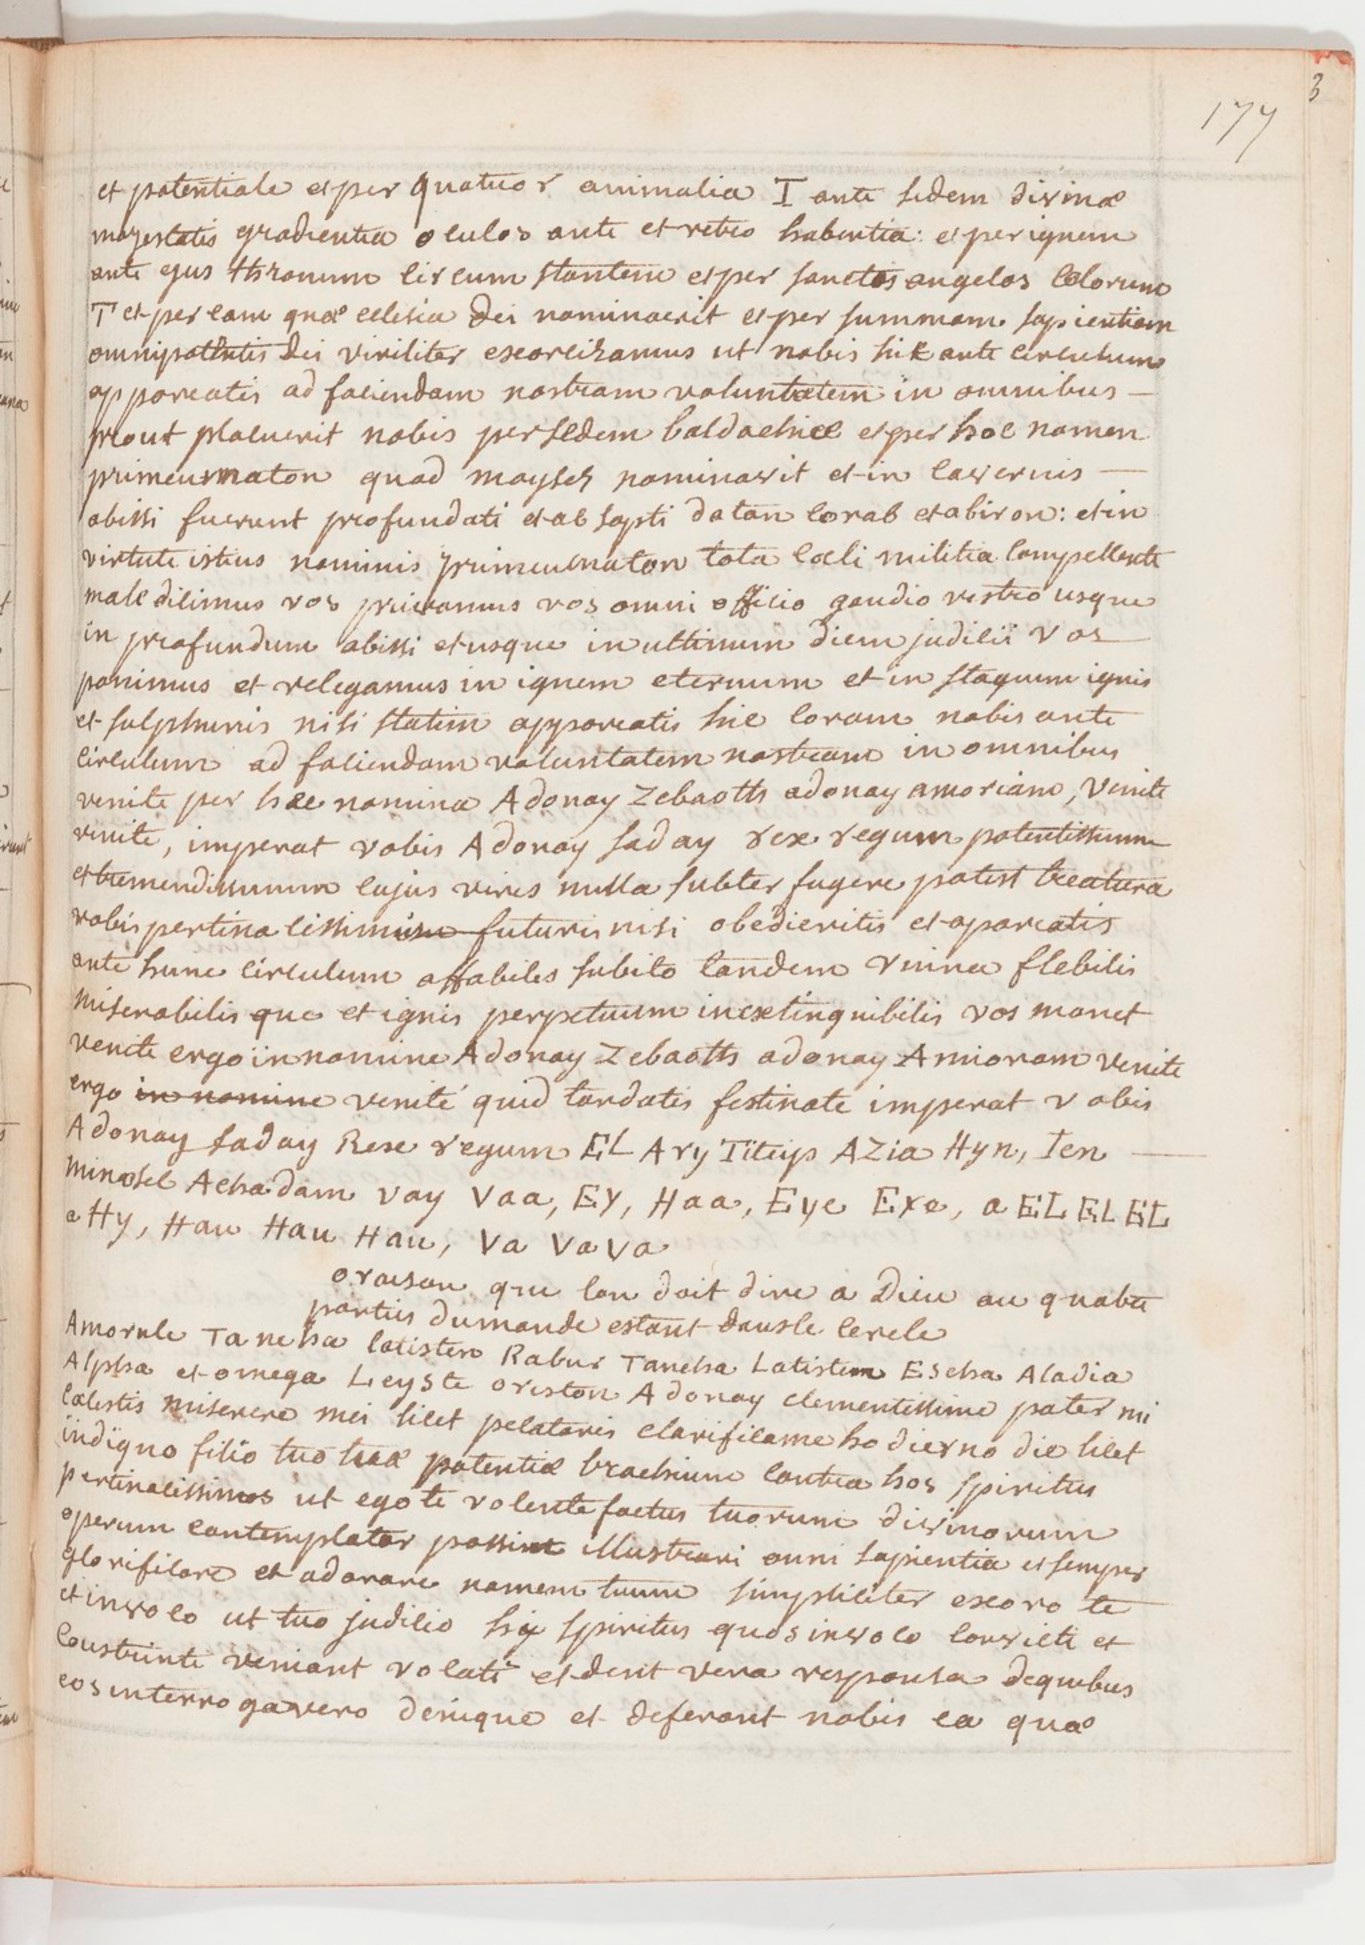 3
177
et potentiale et per quatuor animalia T ante sedem divinæ
mayestatis gradientia oculos ante et retro habentia: et per ignem
ante ejus thronum circum stantem et per sanctos angelos Celorum
T et per eam quæ eclesia dei nominaerit et per summam sapientiam
omnipothtis dei viriliter exorcizamus ut nobis hik ante circulum
apporeatis ad faciendam nostram voluntatem in omnibus —
prout placuerit nobis per sedem baldachiæ et per hoc nomen
primeumaton quod moysez nominavit et in cavernis —
abissi fuerunt profundati et absopti datan corab et abiron: et in
virtute istius nominis primeumaton tota Cœli militia Compellente
maledicimus vos privamus vos omni officio gaudio vestro usque
in profundum abissi et usque in ultimum diem judicii vos —
ponimus et relegamus in ignem eternum et in stagnum ignis
et sulphuris nisi statim apporeatis hic coram nobis ante
circulum ad faciendam voluntatem nostram in omnibus
venite per hæc nomina Adonay Zebaoth adonay amoriam, Venite
venite, imperat vobis Adonay saday rex regum potentissimum
et tremendissimum cujus vires nulla subter fugere potest creatura
vobis pertinacissimis futuris nisi obedieritis et apareatis
ante hunc circulum affabiles subito tandem ruina flebilis
miserabilis que et ignis perpetuum inextinquibilis vos manet
venite ergo in nomine Adonay Zebaoth adonay Amioram venite
ergo in nomine venité quid tardatis festinate imperat vobis
Adonay saday Rex regum EL Ary Titeip AZia Hyn, Ien —
Minosel Achadam vay Vaa, EY, Haa, Eye Exe, a EL EL EL
a Hy, Hau Hau Hau, Va Va Va
oraison que lon doit dire a Dieu au quatre
parties dumonde estant dansle cercle
Amorule Taneha latisten Rabur Taneha Latistem Escha Aladia
Alpha et omega Leyste oriston Adonay clementissime pater mi
Cælestis miserere mei licet pecataris clarificame hodierno die licet
indigno filio tuo tuæ potentiæ brachium contra hos spiritus
pertinacissimos ut ego te volente factus tuorum divinorum
operum contemplator possint illustrari omni sapientia et semper
glorificare et adorare nomem tuum simpliciter exoro te —
et invoco ut tuo judicio hij spiritus quos invoco convicti et
Constrinti veniant vocati et dent vera responsa dequibus
eos interrogavero denique et deferant nobis ea quæ